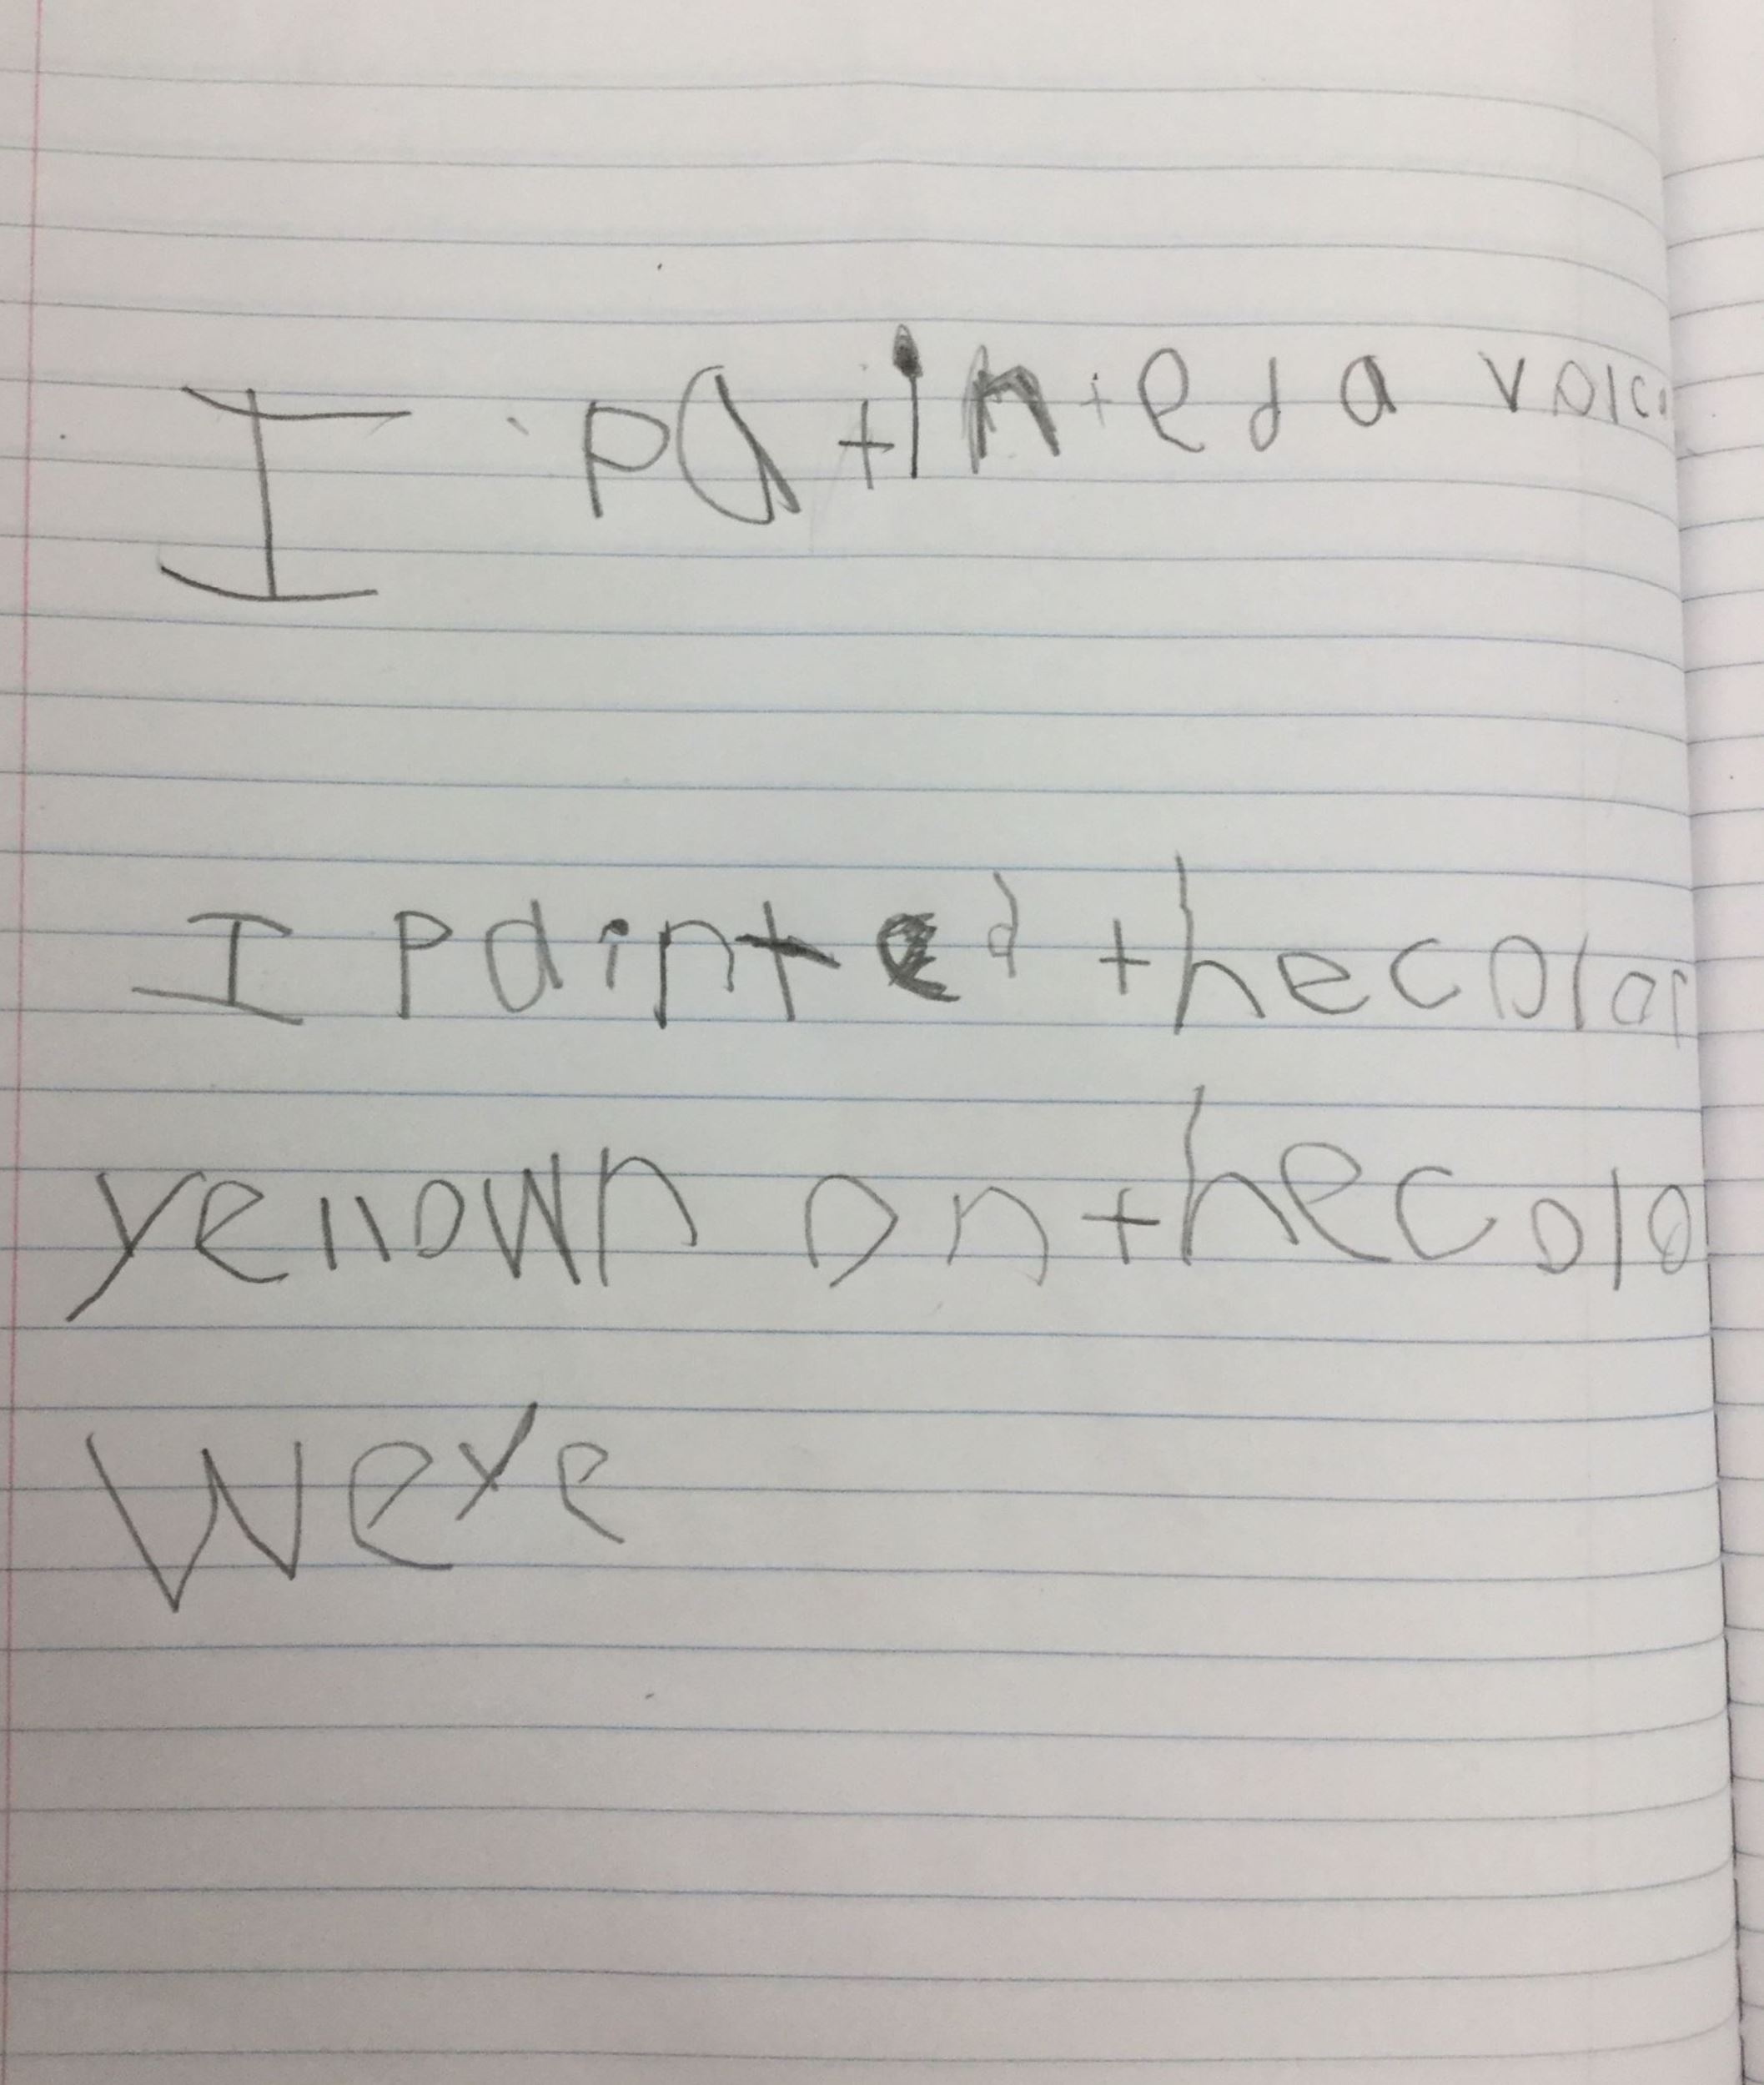 I patinted a volc
I painted the color
yellown on the colo
Wexe